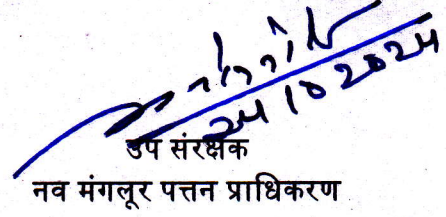 24/10/2024
उप संरक्षक
नव मंगलूर पत्तन प्राधिकरण